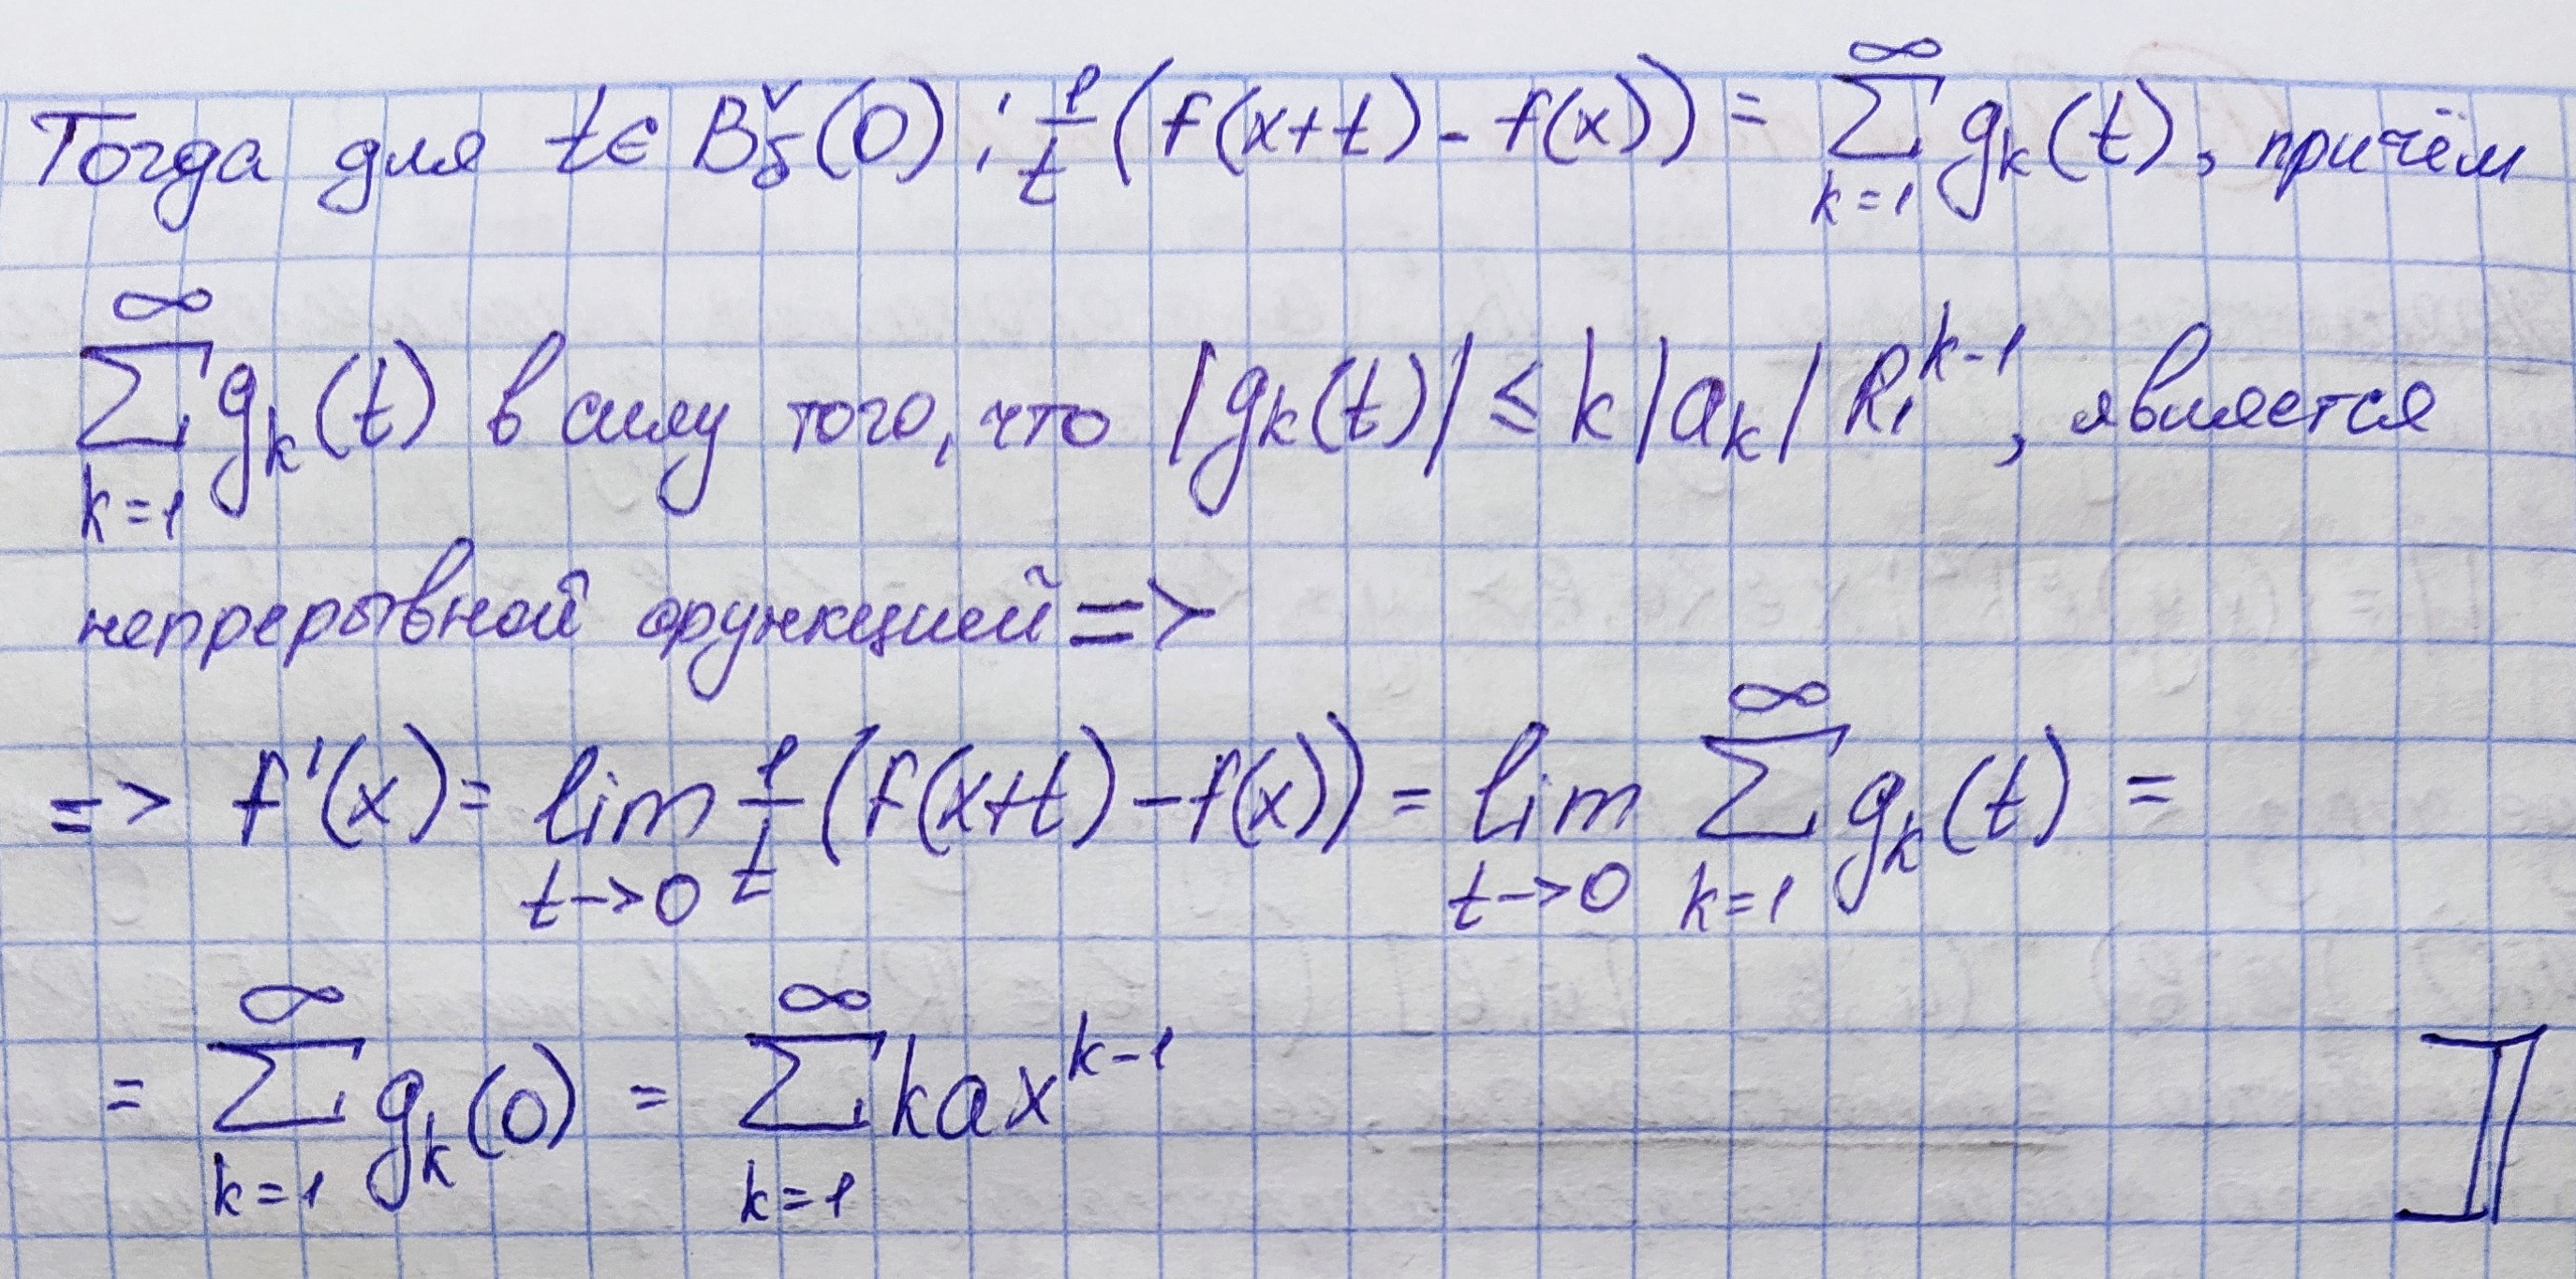 Тогда для t ∈ B̌_δ(0): 1/t (f(x+t) - f(x)) = ∑_{k=1}^{∞} g_k(t), причём
∑_{k=1}^{∞} g_k(t) в силу того, что |g_k(t)| ≤ k|a_k| R_1^{k-1}, является
непрерывной функцией =>
=> f'(x) = lim_{t->0} 1/t (f(x+t) - f(x)) = lim_{t->0} ∑_{k=1}^{∞} g_k(t) =
= ∑_{k=1}^{∞} g_k(0) = ∑_{k=1}^{∞} k a x^{k-1} ]